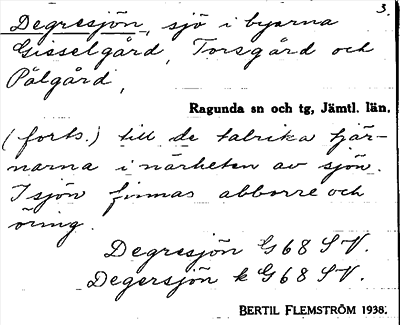 3.
Degresjön, sjö i byarna
Gisselgård, Torsgård och
Pålgård,
Ragunda sn och tg, Jämtl. län.
(forts.) till de talrika tjär-
narna i närheten av sjön.
I sjön finnas abborre och
öring.
Degresjön G 68 S V.
Degersjön k G 68 S V.
BERTIL FLEMSTRÖM 1938.